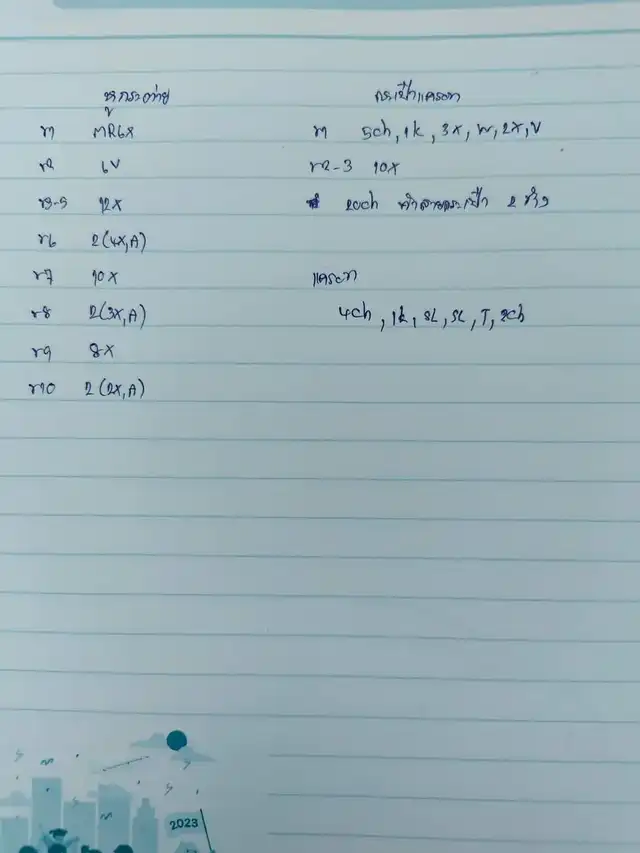 หูกระต่าย
ถ1 MR6X
ถ2 6V
ถ3-5 12X
ถ6 2(4X,A)
ถ7 10X
ถ8 2(3X,A)
ถ9 8X
ถ10 2(2X,A)
กระเป๋าแครอท
ถ1 5ch, 1k, 3X, W, 2X, V
ถ2-3 10X
20ch ทำสายกระเป๋า 2 ข้าง
แครอท
4ch, 1k, SL, SL, T, 2ch
2023